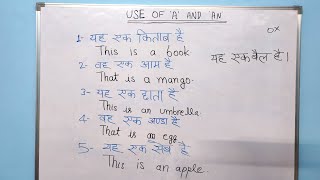 USE OF 'A' AND 'AN
1- यह एक किताब है
This is a book
2. वह एक आम है
That is a mango.
3 - यह एक छाता है
This is an umbrella.
4. वह एक अण्डा है
That is an egg.
5- यह एक सेब है
This is an apple.
ox
यह एक बैल है।